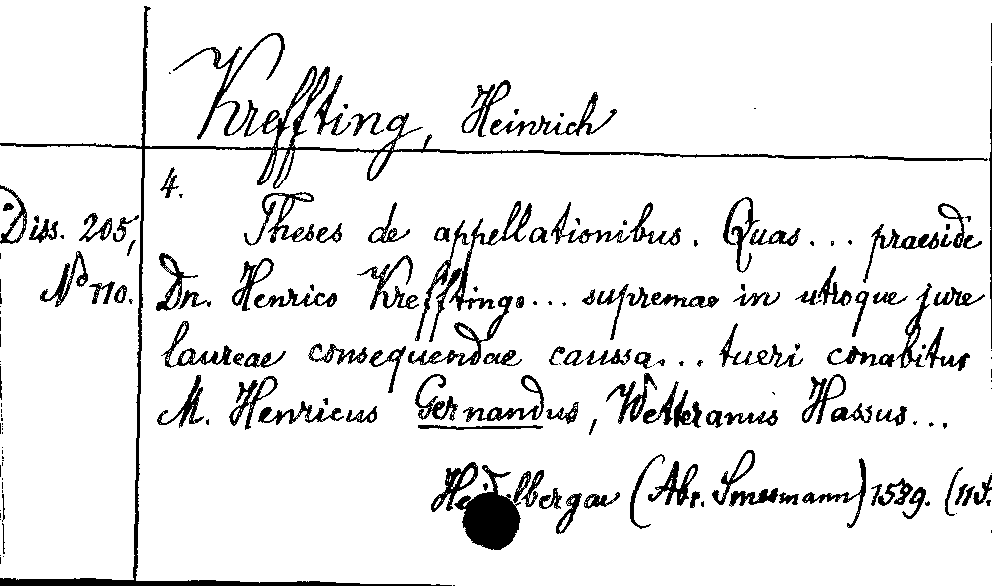 Kreffting, Heinrich
4.
Diss. 205,
No 110.
Theses de appellationibus. Quas... praeside
Dn. Henrico Krefftingo... supremae in utroque jure
laureae consequendae caussa... tueri conabitur
M. Henricus Gernandus, Wetteranus Hassus...
Heidelbergae (Abr. Smesmann) 1589. (11 S.